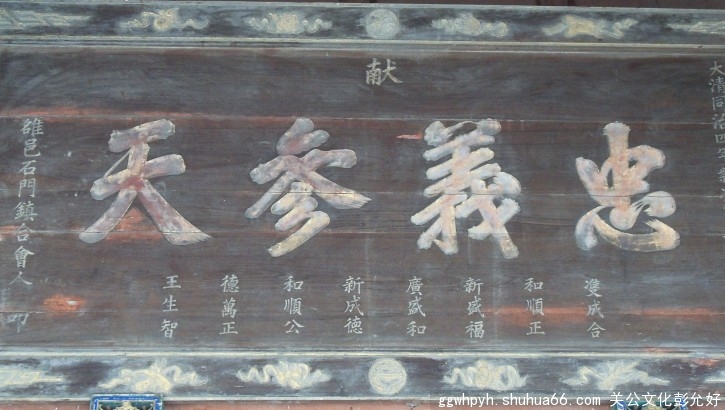 大清同治四年
献
忠義參天
雙成合
和順正
新盛福
廣盛和
新成德
和順公
德萬正
王生智
雒邑石門鎮合會人叩
ggwhpyh.shuhua66.com 关公文化彭允好